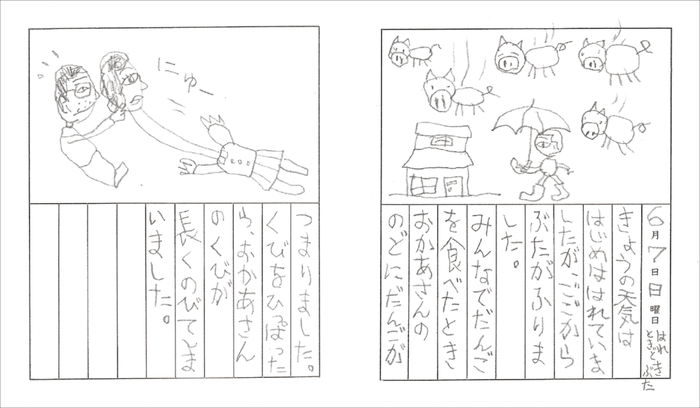 6月7日日曜日 はれときどきぶた
きょうの天気は
はじめははれていま
したがごごから
ぶたがふりま
した。
みんなでだんご
を食べたとき
おかあさんの
のどにだんごが
つまりました。
くびをひっぱった
ら、おかあさん
のくびが
長くのびてしま
いました。
にゅー